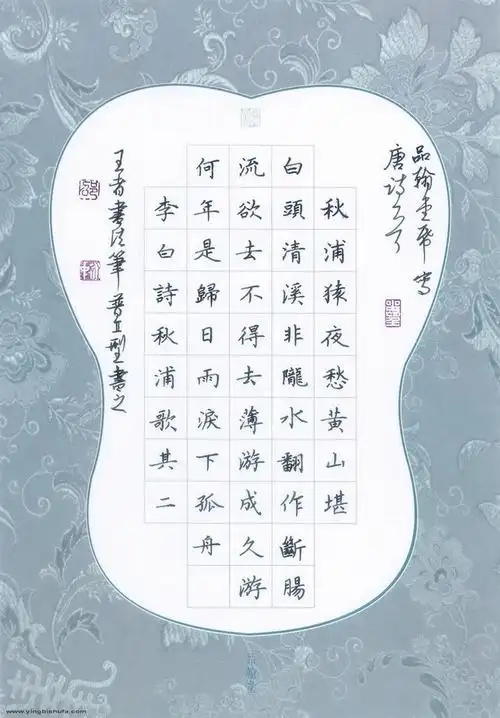 品翰堂
唐诗
秋浦猿夜愁黄山堪
白頭清溪非隴水翻作斷腸
流欲去不得去薄游成久游
何年是歸日雨淚下孤舟
李白詩秋浦歌其二
王者書法筆普及型書之
www.yingbishufa.com